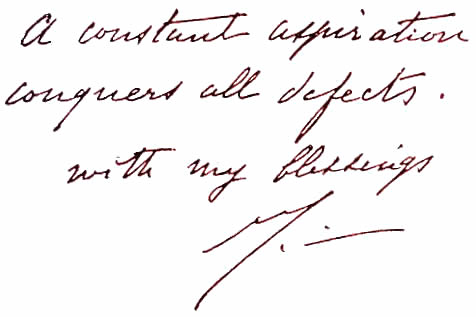 A constant aspiration
conquers all defects.
with my blessings